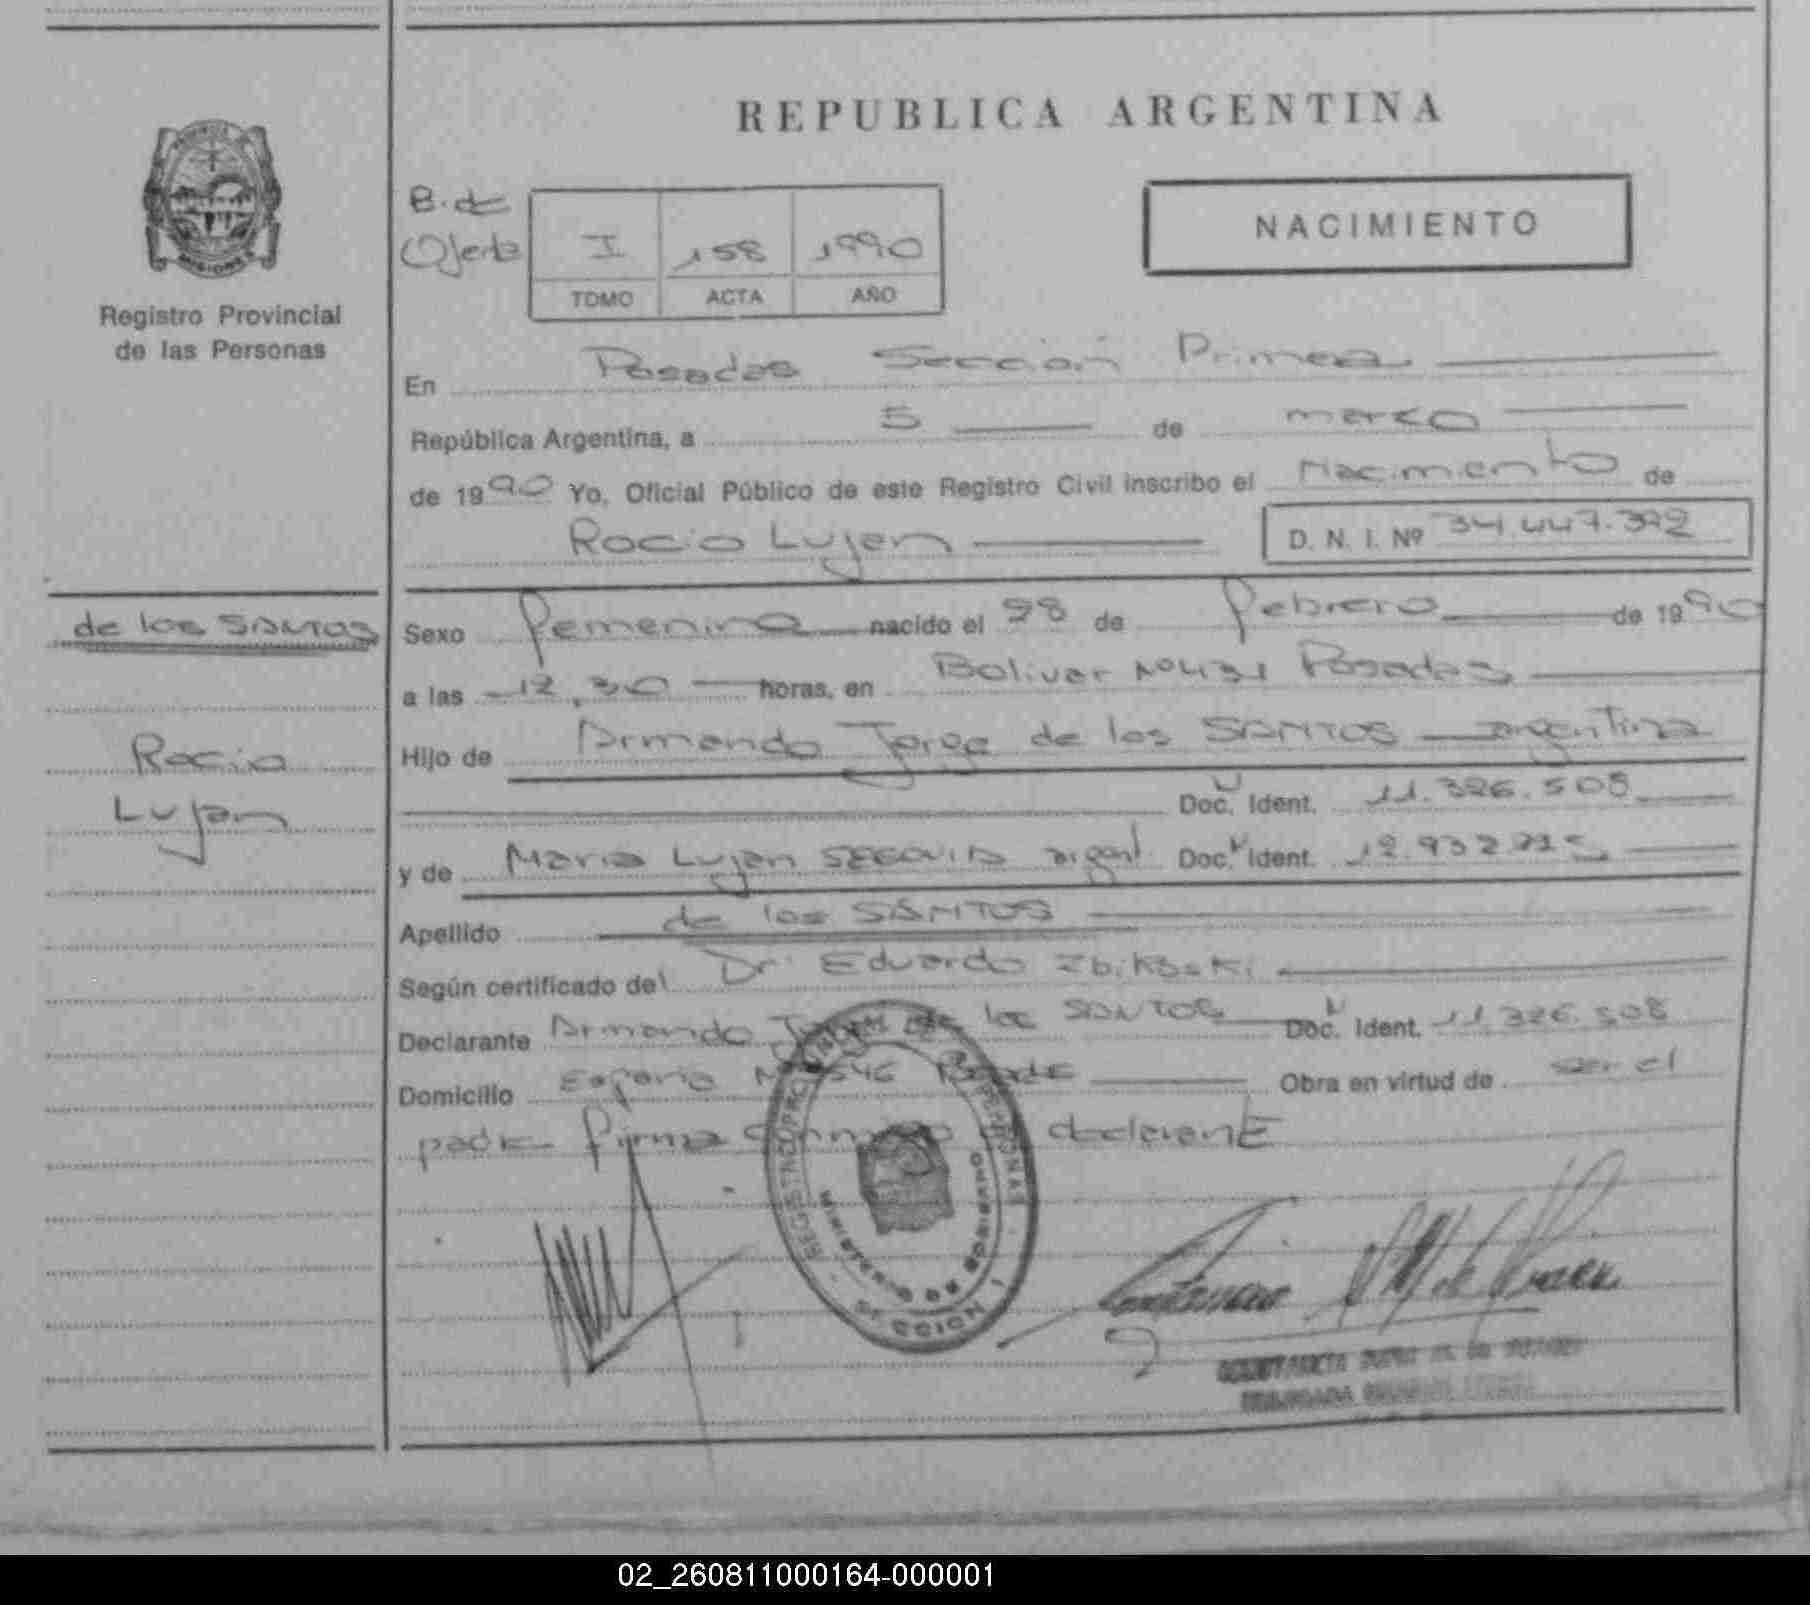 REPUBLICA ARGENTINA
MISIONES
Registro Provincial
de las Personas
B. de
Oferta
I 158 1990
TOMO ACTA AÑO
NACIMIENTO
En Posadas Sección Primera
República Argentina, a 5 de marzo
de 1990 Yo, Oficial Público de este Registro Civil inscribo el Nacimiento de
Rocio Lujan D. N. I. Nº 34.447.392
de los SANTOS
Rocio
Lujan
Sexo femenino nacido el 28 de febrero de 1990
a las 12,30 horas, en Bolivar Nº 431 Posadas
Hijo de Armando Jorge de los SANTOS argentina
Doc. Ident. 11.326.508
y de Maria Lujan SEGOVIA argent. Doc. Ident.
Apellido de los SANTOS
Según certificado del Dr. Eduardo
Declarante Armando Jorge de los SANTOS Doc. Ident. 11.326.508
Domicilio Obra en virtud de ser el
padre firma conmigo el declarante
REGISTRO PROVINCIAL DE LAS PERSONAS
MINISTERIO DE GOBIERNO
SECCION 1
02_260811000164-000001